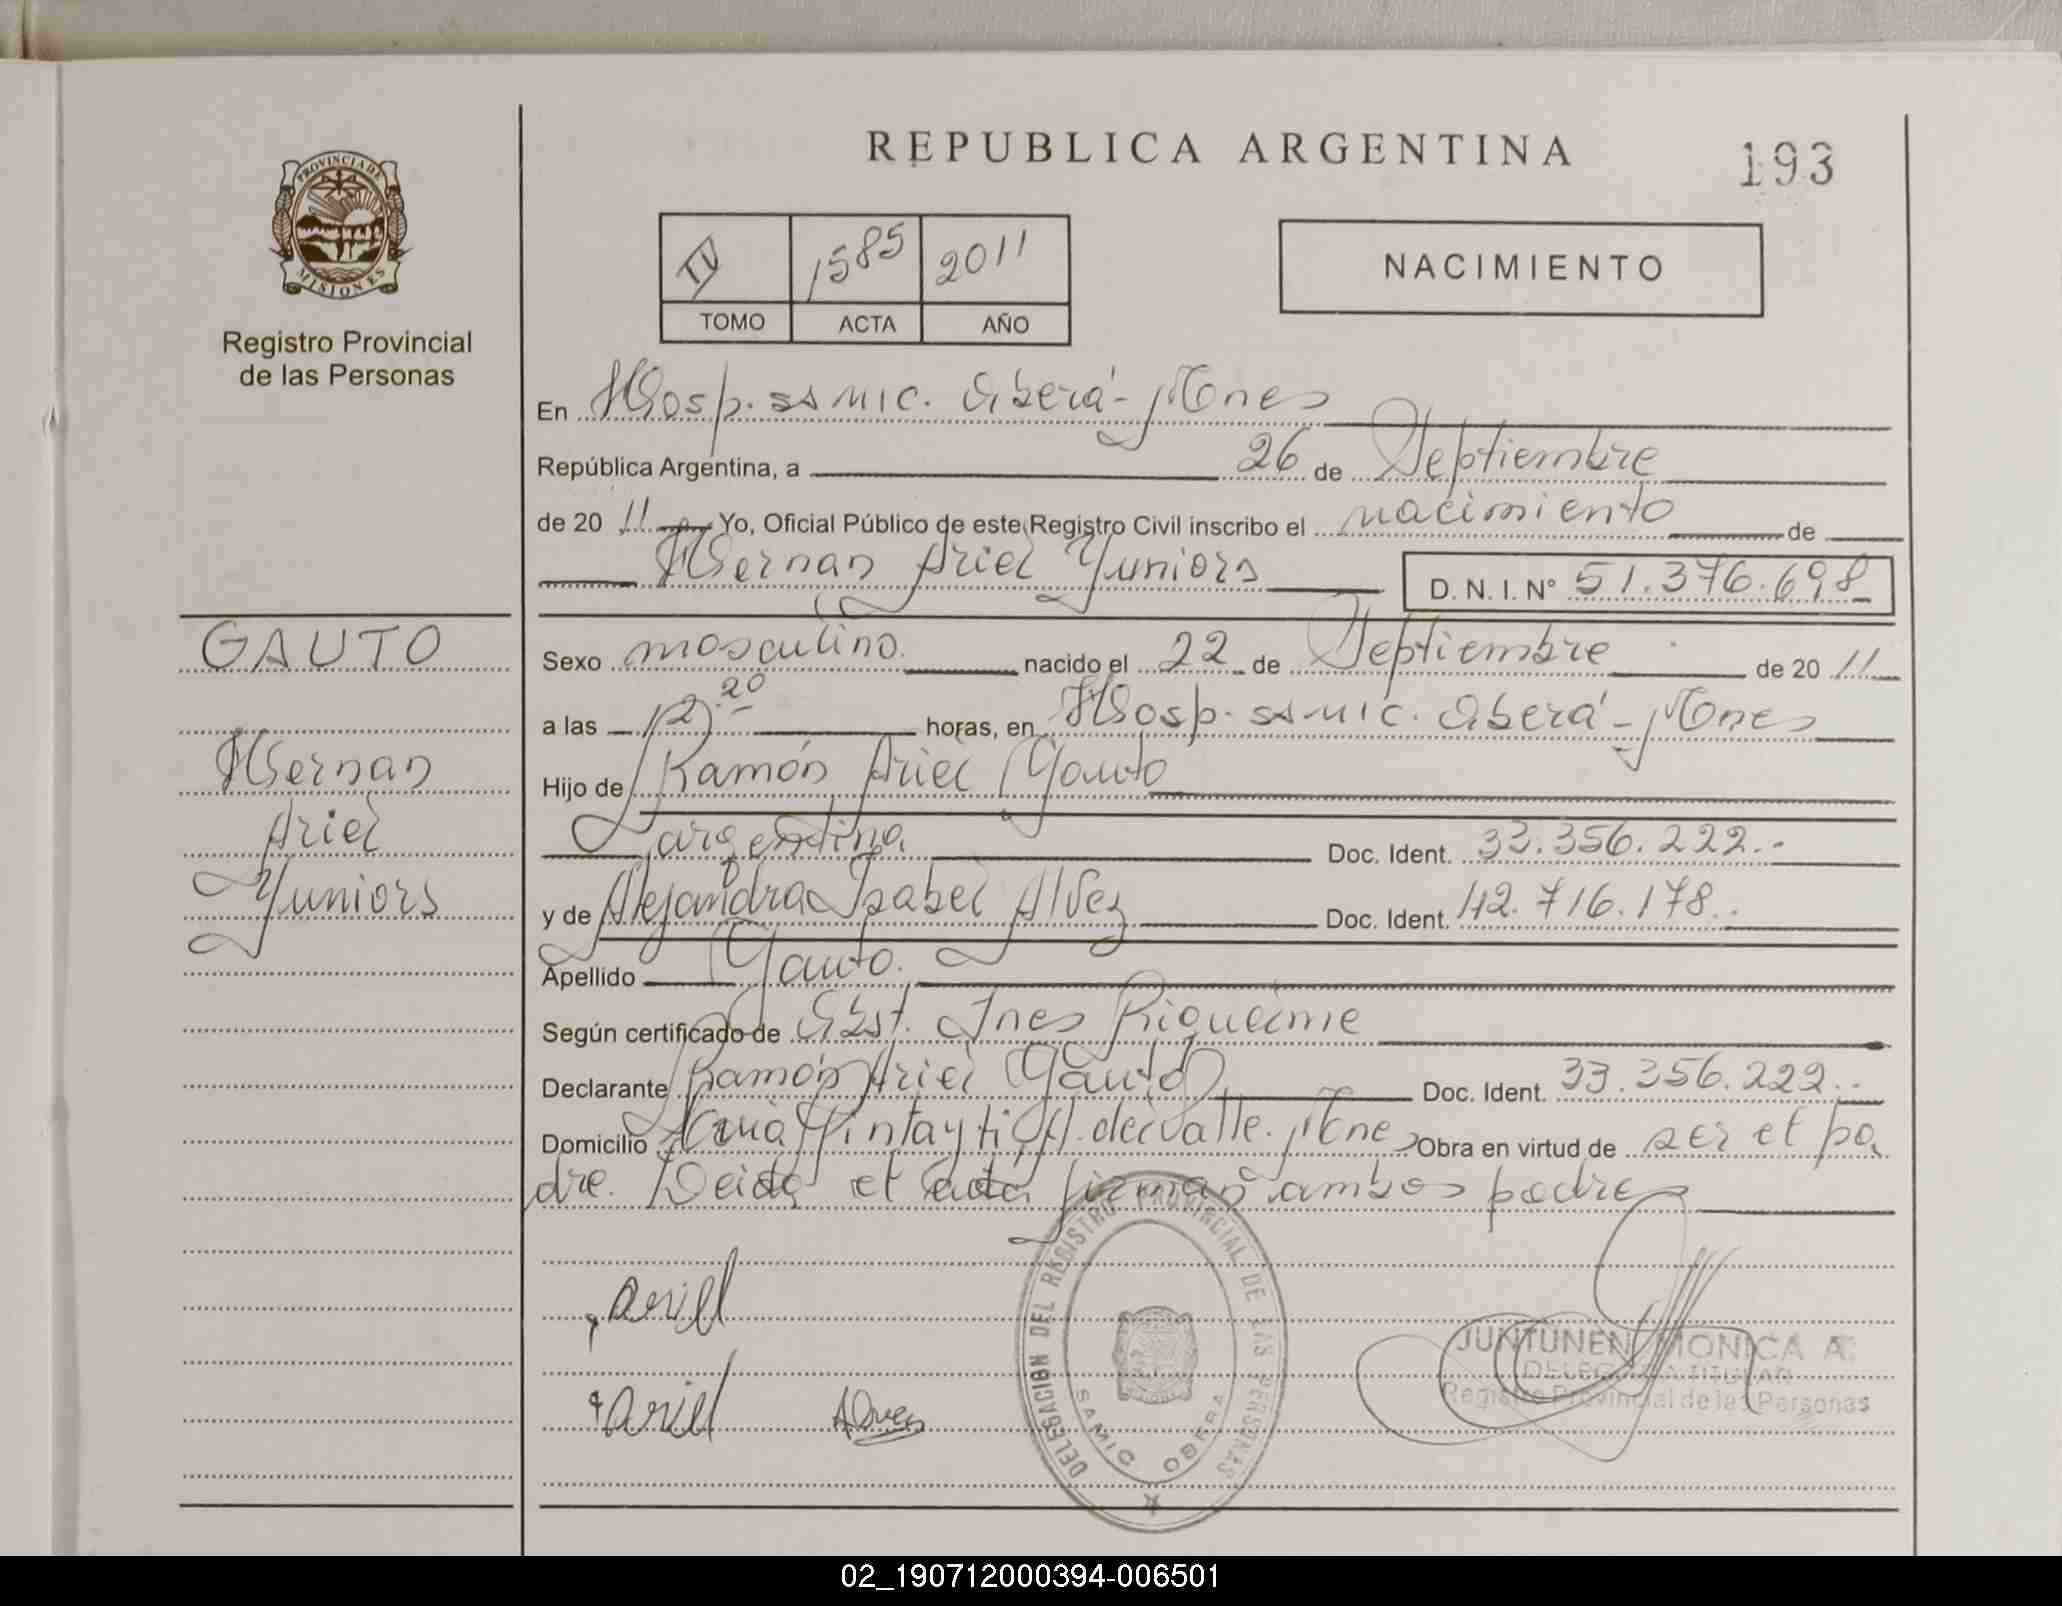 PROVINCIA DE
MISIONES
Registro Provincial
de las Personas
GAUTO
Hernan
Ariel
Yuniors
REPUBLICA ARGENTINA
193
IV 1585 2011
TOMO ACTA AÑO
NACIMIENTO
En Hosp. SAMIC. Oberá - Mnes
República Argentina, a 26 de Septiembre
de 20 11 Yo, Oficial Público de este Registro Civil inscribo el nacimiento de
Hernan Ariel Yuniors D. N. I. Nº 51.376.698
Sexo masculino. nacido el 22 de Septiembre de 20 11
a las 12.20 horas, en Hosp. SAMIC. Oberá - Mnes
Hijo de Ramón Ariel Gauto
argentina Doc. Ident. 33.356.222.-
y de Alejandra Isabel Alvez Doc. Ident. 42.716.178.-
Apellido Gauto.
Según certificado de Obst. Ines Riqueime
Declarante Ramón Ariel Gauto Doc. Ident. 33.356.222.-
Domicilio A. del Valle. Mnes Obra en virtud de ser el pa
dre. Leida el acta firman ambos padres
Ariel
Ariel Alves
DELEGACION DEL REGISTRO PROVINCIAL DE LAS PERSONAS
SAMIC OBERA
JUNTUNEN MONICA A.
DELEGADA TITULAR
Registro Provincial de las Personas
02_190712000394-006501